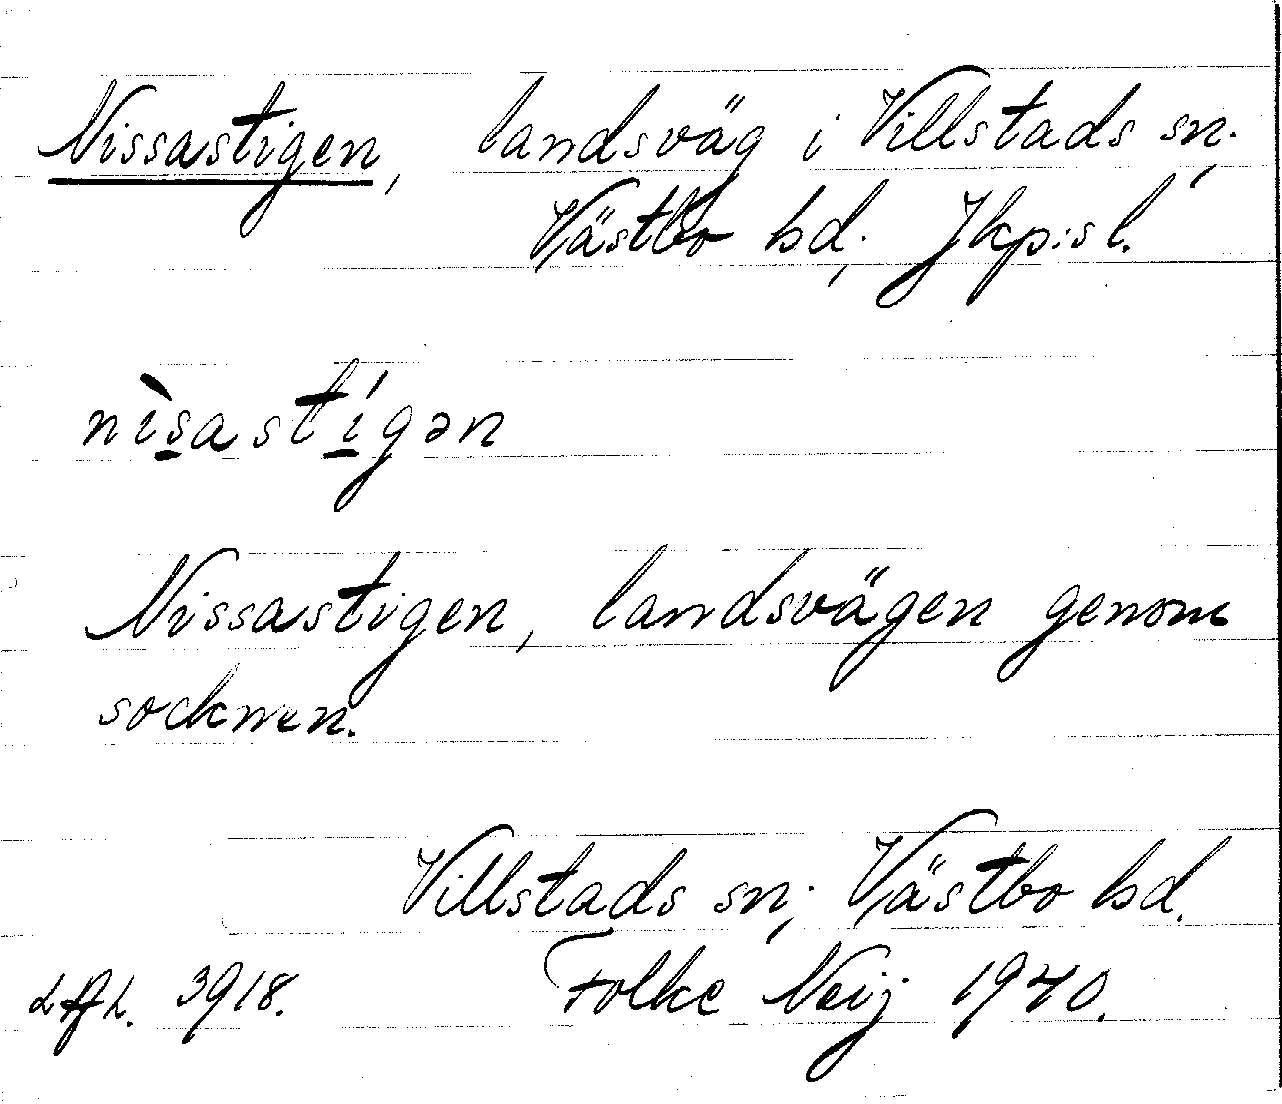 Nissastigen, landsväg i Villstads sn.,
Västbo hd., Jkp:s l.
nìsastígən
Nissastigen, landsvägen genom
socknen.
Villstads sn., Västbo hd.
3918. Folke Neij 1940.